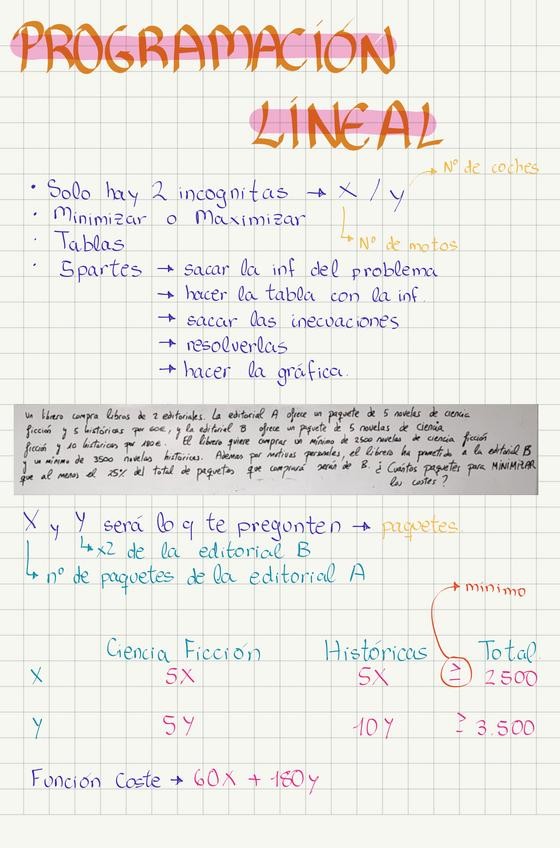 PROGRAMACIÓN
LINEAL
· Solo hay 2 incognitas → X / y
→ Nº de coches
· Minimizar o Maximizar
· Tablas
Nº de motos
· 5 partes → sacar la inf del problema
→ hacer la tabla con la inf.
→ sacar las inecuaciones
→ resolverlas
→ hacer la gráfica.
Un librero compra libros de 2 editoriales. La editorial A ofrece un paquete de 5 novelas de ciencia
ficción y 5 históricas por 60€, y la editorial B ofrece un paquete de 5 novelas de ciencia
ficción y 10 históricas por 180€. El librero quiere comprar un mínimo de 2500 novelas de ciencia ficción
y un mínimo de 3500 novelas históricas. Ademas por motivos personales, el librero ha prometido a la editorial B
que al menos el 25% del total de paquetes que comprará serán de B. ¿Cuántos paquetes para MINIMIZAR
los costes?
X y Y será lo q te pregunten → paquetes
x2 de la editorial B
nº de paquetes de la editorial A
→ minimo
Ciencia Ficción Históricas Total
X 5X 5X ≥ 2500
Y 5Y 10Y ≥ 3.500
Función Coste → 60X + 180y